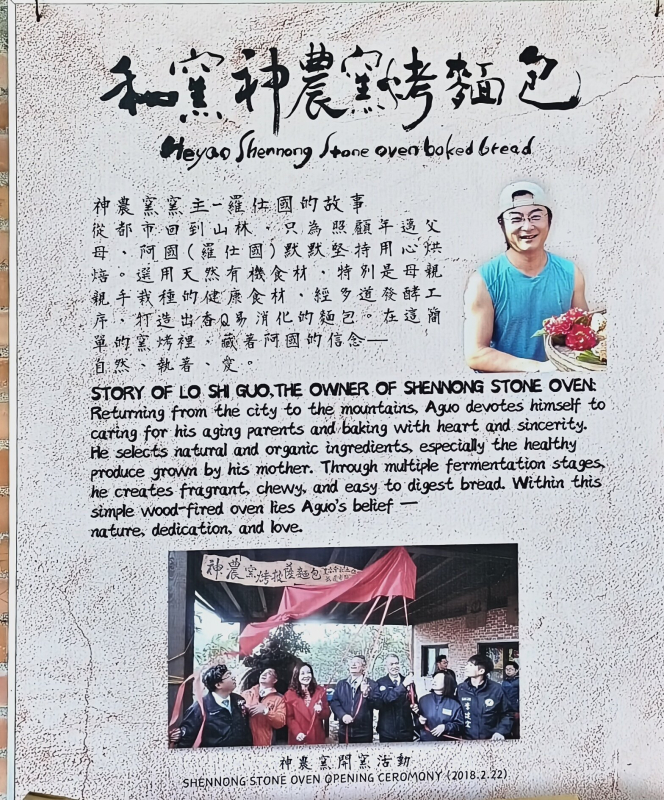 和窯神農窯烤麵包
Heyao Shennong Stone oven baked bread
神農窯窯主-羅仕國的故事
從都市回到山林，只為照顧年邁父
母、阿國(羅仕國)默默堅持用心烘
焙。選用天然有機食材、特別是母親
親手栽種的健康食材、經多道發酵工
序、打造出香Q易消化的麵包。在這簡
單的窯烤裡、藏著阿國的信念—
自然、執著、愛。
STORY OF LO SHI GUO,THE OWNER OF SHENNONG STONE OVEN:
Returning from the city to the mountains, Aguo devotes himself to
caring for his aging parents and baking with heart and sincerity.
He selects natural and organic ingredients, especially the healthy
produce grown by his mother. Through multiple fermentation stages,
he creates fragrant, chewy, and easy to digest bread. Within this
simple wood-fired oven lies Aguo's belief —
nature, dedication, and love.
神農窯烤披薩麵包
神農窯開窯活動
SHENNONG STONE OVEN OPENING CEROMONY (2018.2.22)